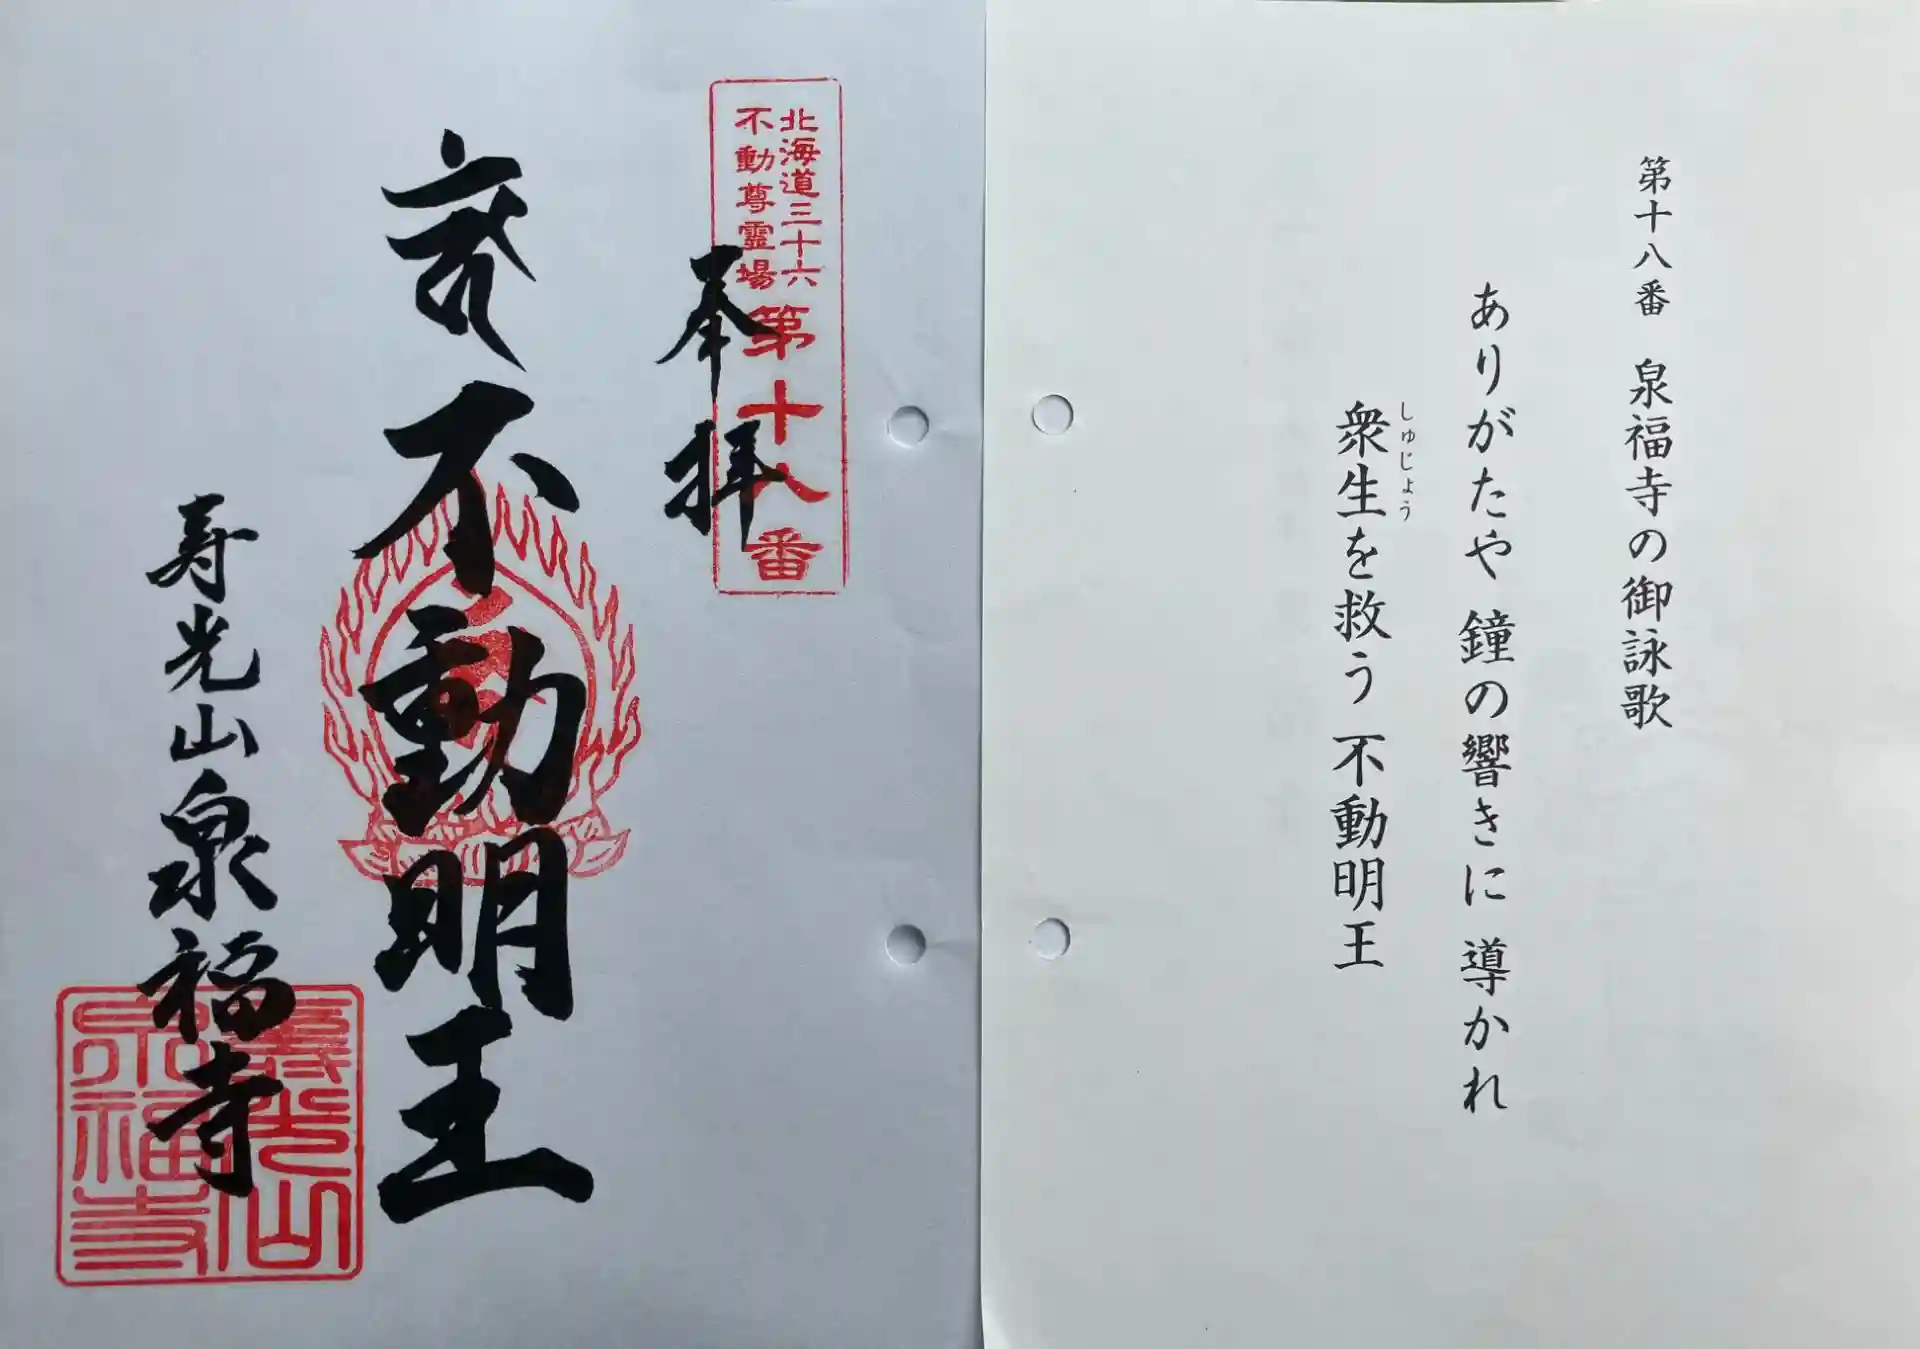 第十八番　泉福寺の御詠歌
ありがたや 鐘の響きに 導かれ
しゅじょう
衆生を救う 不動明王
北海道三十六
不動尊霊場
第十八番
奉拝
不動明王
寿光山 泉福寺
壽光山
泉福寺